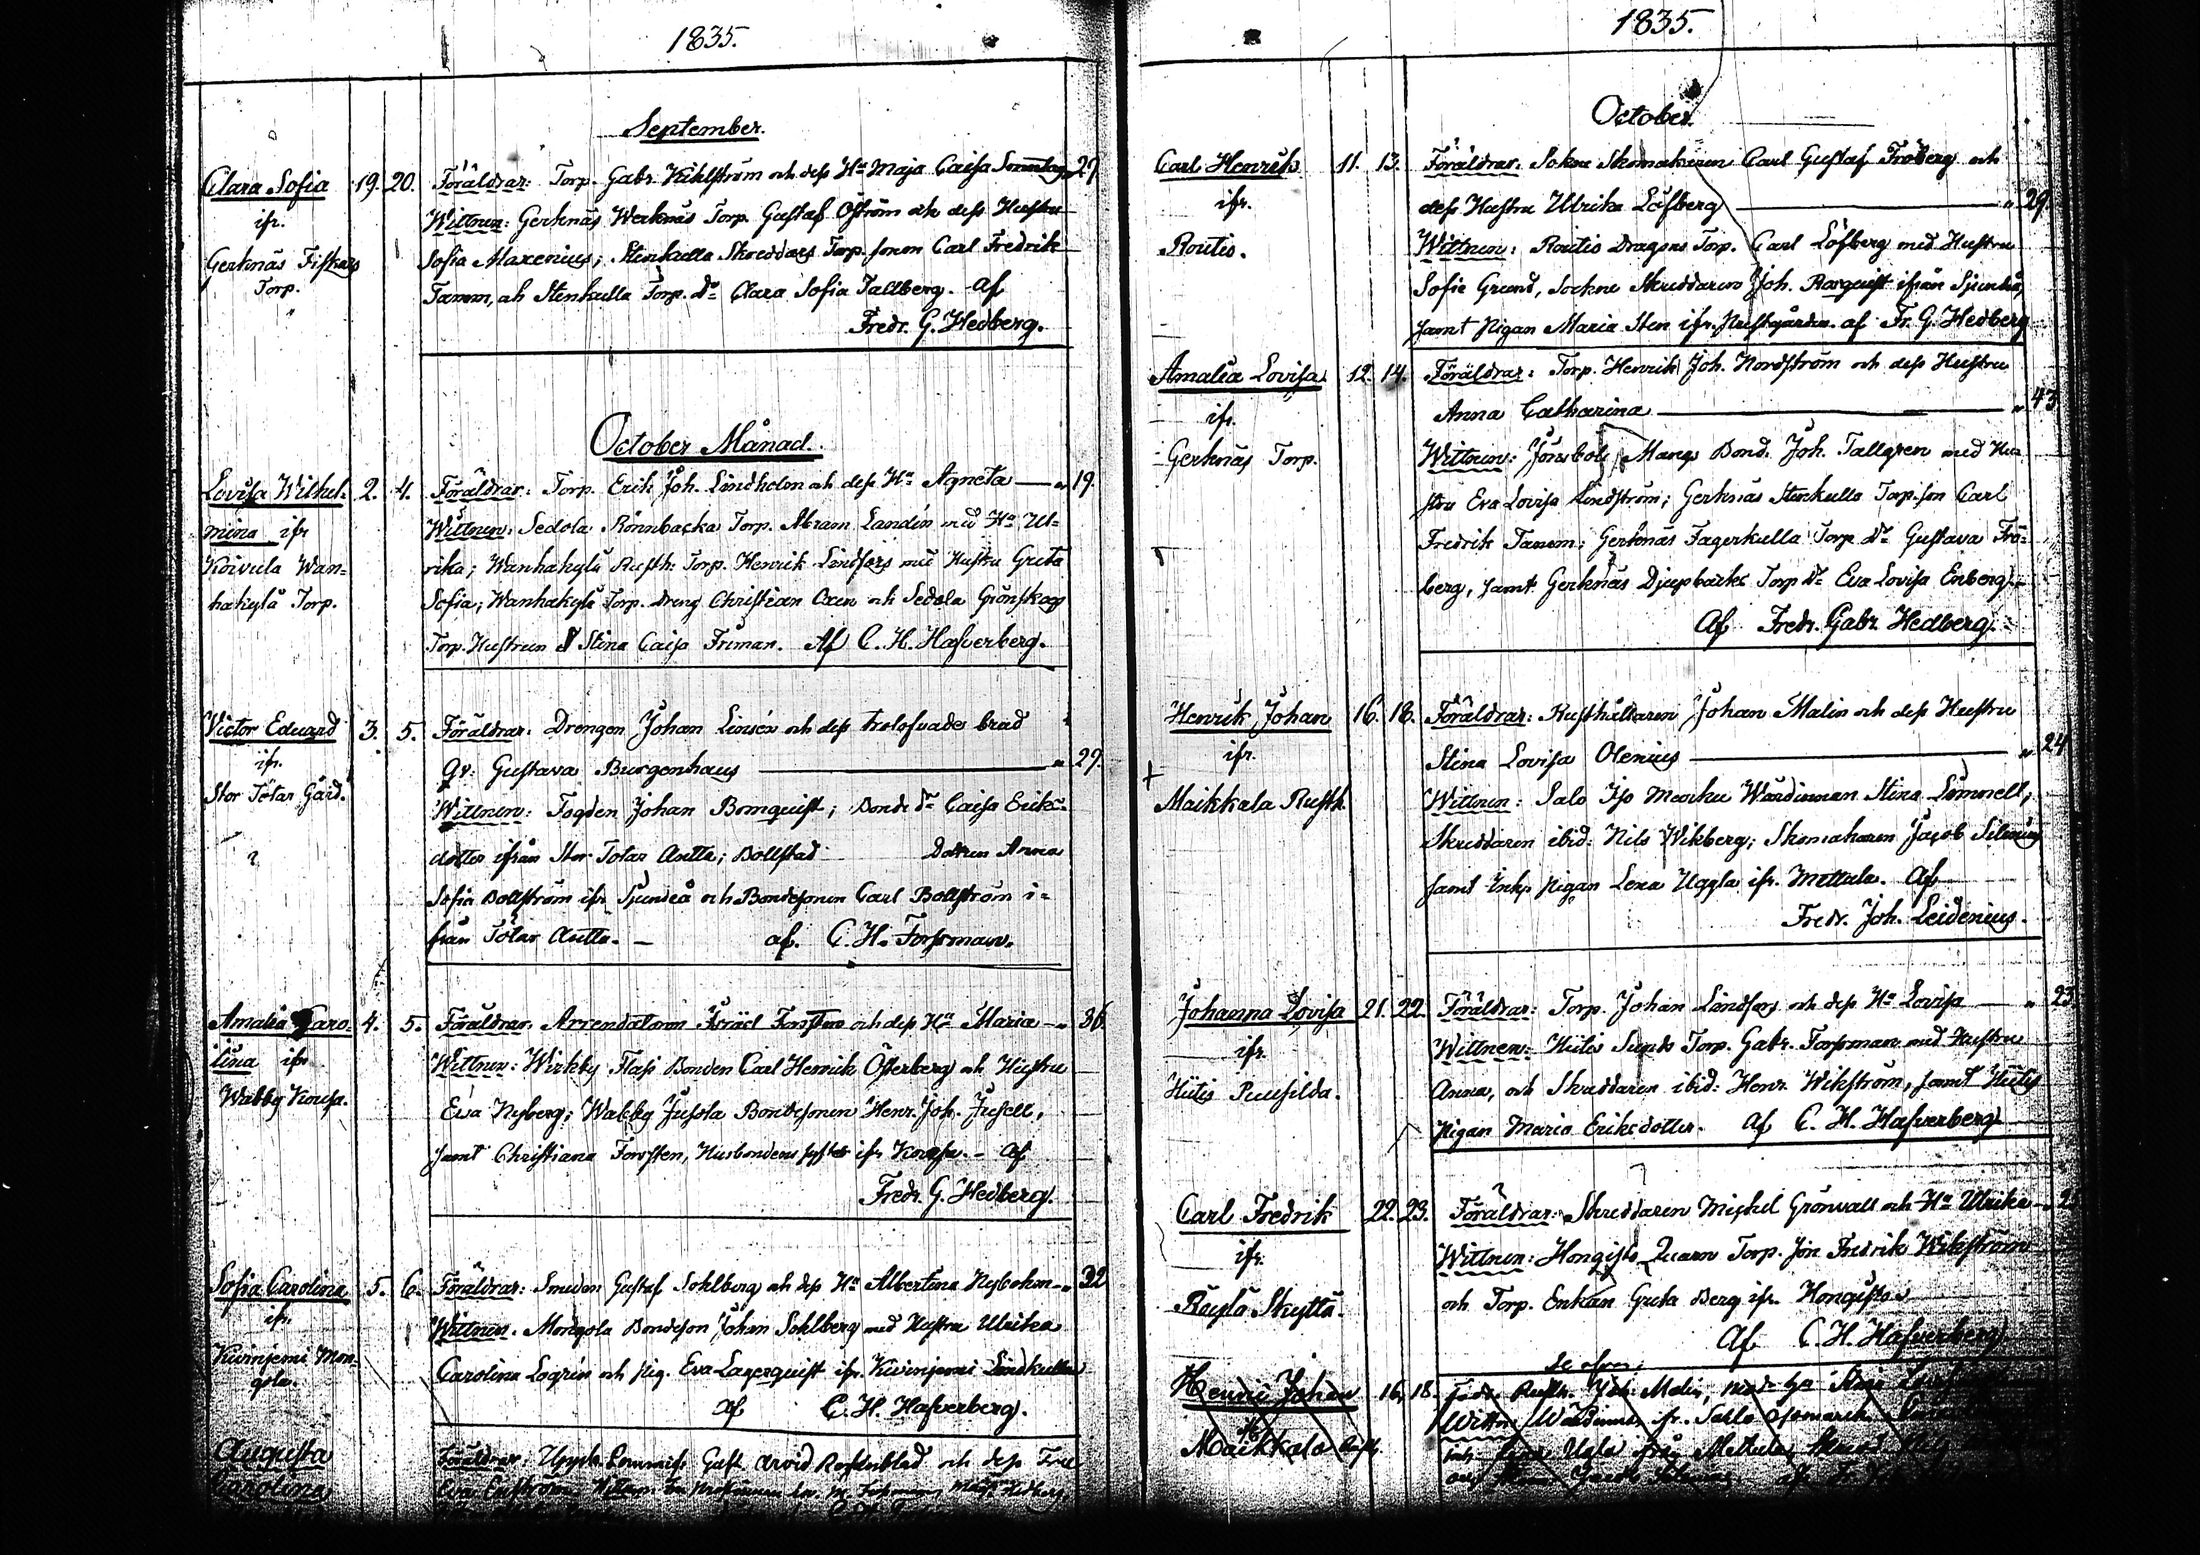 1835.
September.
Clara Sofia 19. 20. Föräldrar: Torp. Gabr. Kihlström och dess Hu Maja Caisa 29
ifr. Wittnen: Gerknäs Werknäs Torp. Gustaf Öström och dess Hustru
Gerknäs Fiskars Sofia Alaxenius; Stenkulla Skreddars Torp. sonen Carl Fredrik
Torp. Tamm, ah Stenkulla Torp. dr Clara Sofia Tallberg. Af
Fredr. G. Hedberg.
October Månad.
Lovisa Wilhel- 2. 4. Föräldrar: Torp. Erik Joh. Lindholm och dess Hu Agneta 19.
mina ifr Wittnen: Sedola Rönnbacka Torp. Abram Landén med Hu Ul-
Koivula Wan- rika; Wanhakylä Rusth: Torp. Henrik Lindfors med Hustru Greta
hakylä Torp. Sofia; Wanhakylä Torp. Dreng Christian Oxen och Sedola Grönskog
Torp. Hustrun Stina Caisa Friman. Af C. H. Hafverberg.
Victor Eduard 3. 5. Föräldrar: Drengen Johan Linsén och dess trolofvade brud
ifr. Qv: Gustava Burgenhaus 29.
Stor Tötar Gård. Wittnen: Fogden Johan Bomquist; Bonde dr Caisa Eriks-
dotter ifrån Stor Totar Antti; Bollstad Anna
Sofia Bollström ifr Sjundeå och Bondesonen Carl Bollström i-
från Tötar Antti. af. C. H. Forssman.
Amalia Caro- 4. 5. Föräldrar: Arrendatorn Israel Forsten och dess Hu Maria 36
lina ifr Wittnen: Wirkby Flass Bonden Carl Henrik Österberg och Hustru
Wabby Kousa. Eva Nyberg; Wabby Jusola Bondesonen Henr. Joh. Jusell,
samt Christiana Forssten, Husbondens syster ifr Kousa. - Af
Fredr. G. Hedberg.
Sofia Carolina 5. 6. Föräldrar: Smeden Gustaf Sohlberg och dess Hu Albertina Nybohm 32
ifr. Wittnen. Mongola Bondeson Johan Sohlberg med Hustru Ulrika
Kivinjemi Mon- Carolina Logrén och Pig. Eva Lagerquist ifr. Kivinjemi Lindkulla
gola. af C. H. Hafverberg.
Augusta Föräldrar: Gust. Arvid Rosenblad och dess Fru
Carolina Eva
1835.
October.
Carl Henrik 11. 13. Föräldrar: Sokne Skomakaren Carl Gustaf Fröberg och
ifr. dess Hustru Ulrika Löfberg 29.
Routio. Wittnen: Routio Dragons Torp. Carl Löfberg med Hustru
Sofia Grund, Sockne Skreddaren Joh. Rosquist ifrån Sjundeå,
samt Pigan Maria Sten ifr. Prestgården. af Fr. G. Hedberg
Amalia Lovisa 12. 14. Föräldrar: Torp. Henrik Joh. Nordström och dess Hustru
ifr. Anna Catharina 43
Gerknäs Torp. Wittnen: Jönsböle Mangs Bond. Joh. Tallgren med Hu-
stru Eva Lovisa Lindström; Gerknäs Stenkulla Torp. son Carl
Fredrik Tamm; Gerknäs Fagerkulla Torp. dr Gustava Frö-
berg, samt Gerknäs Djupbäcks Torp dr Eva Lovisa Enberg.
Af Fredr. Gabr. Hedberg.
Henrik Johan 16. 18. Föräldrar: Rusthållaren Johan Malin och dess Hustru
ifr. Stina Lovisa Olenius 24
+ Maikkala Rusth. Wittnen: Salo Iso Marku Wärdinnan Stina Lomnell,
Skreddaren ibid: Nils Wikberg; Skomakaren Jacob Silenius
samt Inh: Pigan Lena Uggla ifr. Mettula. Af
Fredr. Joh. Leidenius.
Johanna Lovisa 21. 22. Föräldrar: Torp. Johan Lindfors och dess Hu Lovisa 23
ifr. Wittnen: Hiitis Sunds Torp. Gabr. Forssman med Hustru
Hiitis Puusilda. Anna, och Skreddaren ibid: Henr. Wikström, samt Hiitis
Pigan Maria Eriksdotter. Af C. H. Hafverberg
Carl Fredrik 22. 23. Föräldrar: Skreddaren Michel Grönvall och Hu Ulrika
ifr. Wittnen: Hongisto Quarn Torp. son Fredrik Wikström
Röylä Skyttä. och Torp. Enkan Greta Berg ifr. Hongisto
Af C. H. Hafverberg
Henric Johan 16. 18. Rusth. Joh. Malin,
ifr Wittn: ifr.
Maikkala Rusth. Lena Ugla från Mettula,